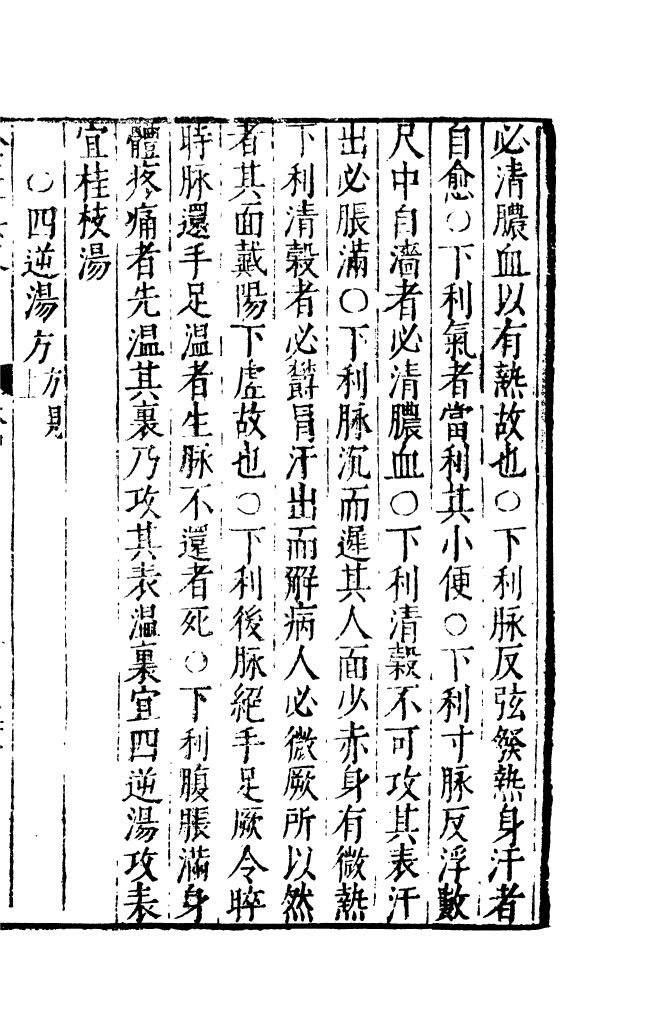 必清膿血以有熱故也○下利脉反弦發熱身汗者
自愈○下利氣者當利其小便○下利寸脉反浮數
尺中自濇者必清膿血○下利清穀不可攻其表汗
出必脹滿○下利脉沉而遲其人面少赤身有微熱
下利清穀者必欝冒汗出而解病人必微厥所以然
者其面戴陽下虛故也○下利後脉絕手足厥令晬
時脉還手足溫者生脉不還者死○下利腹脹滿身
體疼痛者先溫其裏乃攻其表溫裏宜四逆湯攻表
宜桂枝湯
○四逆湯方方見上